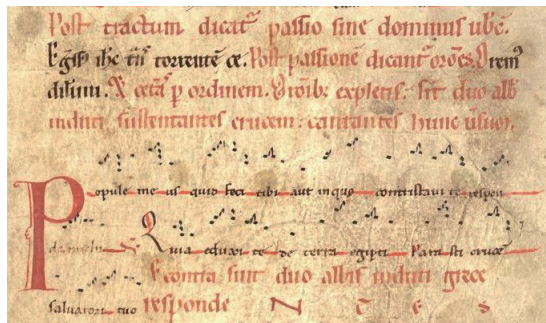 Post tractum dicat᷑ passio sine dominus ubc̄.
torrentē Post passionē dicant᷑ orōes. Orem᷒
p ordinem. Orōib; expletis. sīt duo alb̄
induti sustentantes crucem: cantantes hunc ūsum.
Popule meus quid feci tibi aut in quo contristavi te respon
de michi Quia eduxi te de terra egipti parasti crucē
contra sint duo albis induti grece
salvatori tuo responde N T E S